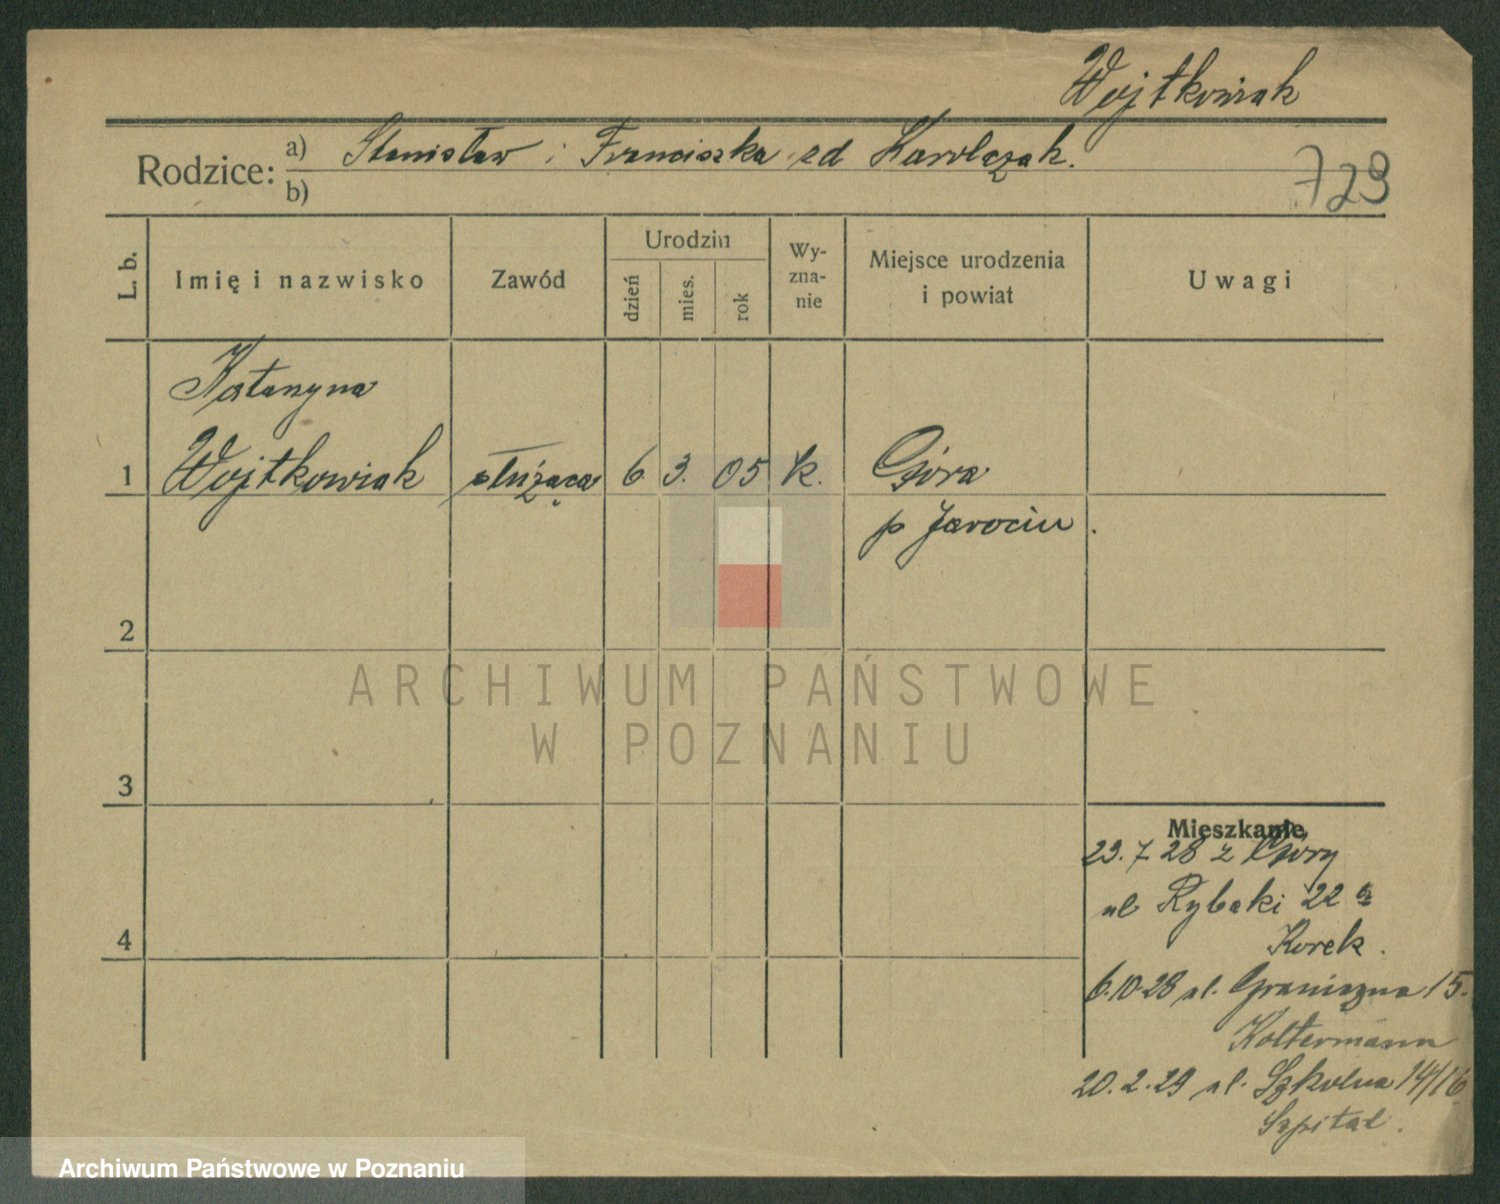 Wojtkowiak
Rodzice: a) Stanisław i Franciszka zd Karolczak.
b)
729
L. b.
Imię i nazwisko
Zawód
Urodzin
dzień
mies.
rok
Wy-
zna-
nie
Miejsce urodzenia
i powiat
Uwagi
Katarzyna
1 Wojtkowiak służąca 6 3. 05 k. Góra
p Jarocin.
2
3
4
Mieszkanie
23. 7 28 z Góry
ul Rybaki 22
Korek.
6.10.28 ul. Graniczna 15.
Koltermann
20.2.29 ul. Szkolna 14/16
Szpital.
ARCHIWUM PAŃSTWOWE
W POZNANIU
Archiwum Państwowe w Poznaniu